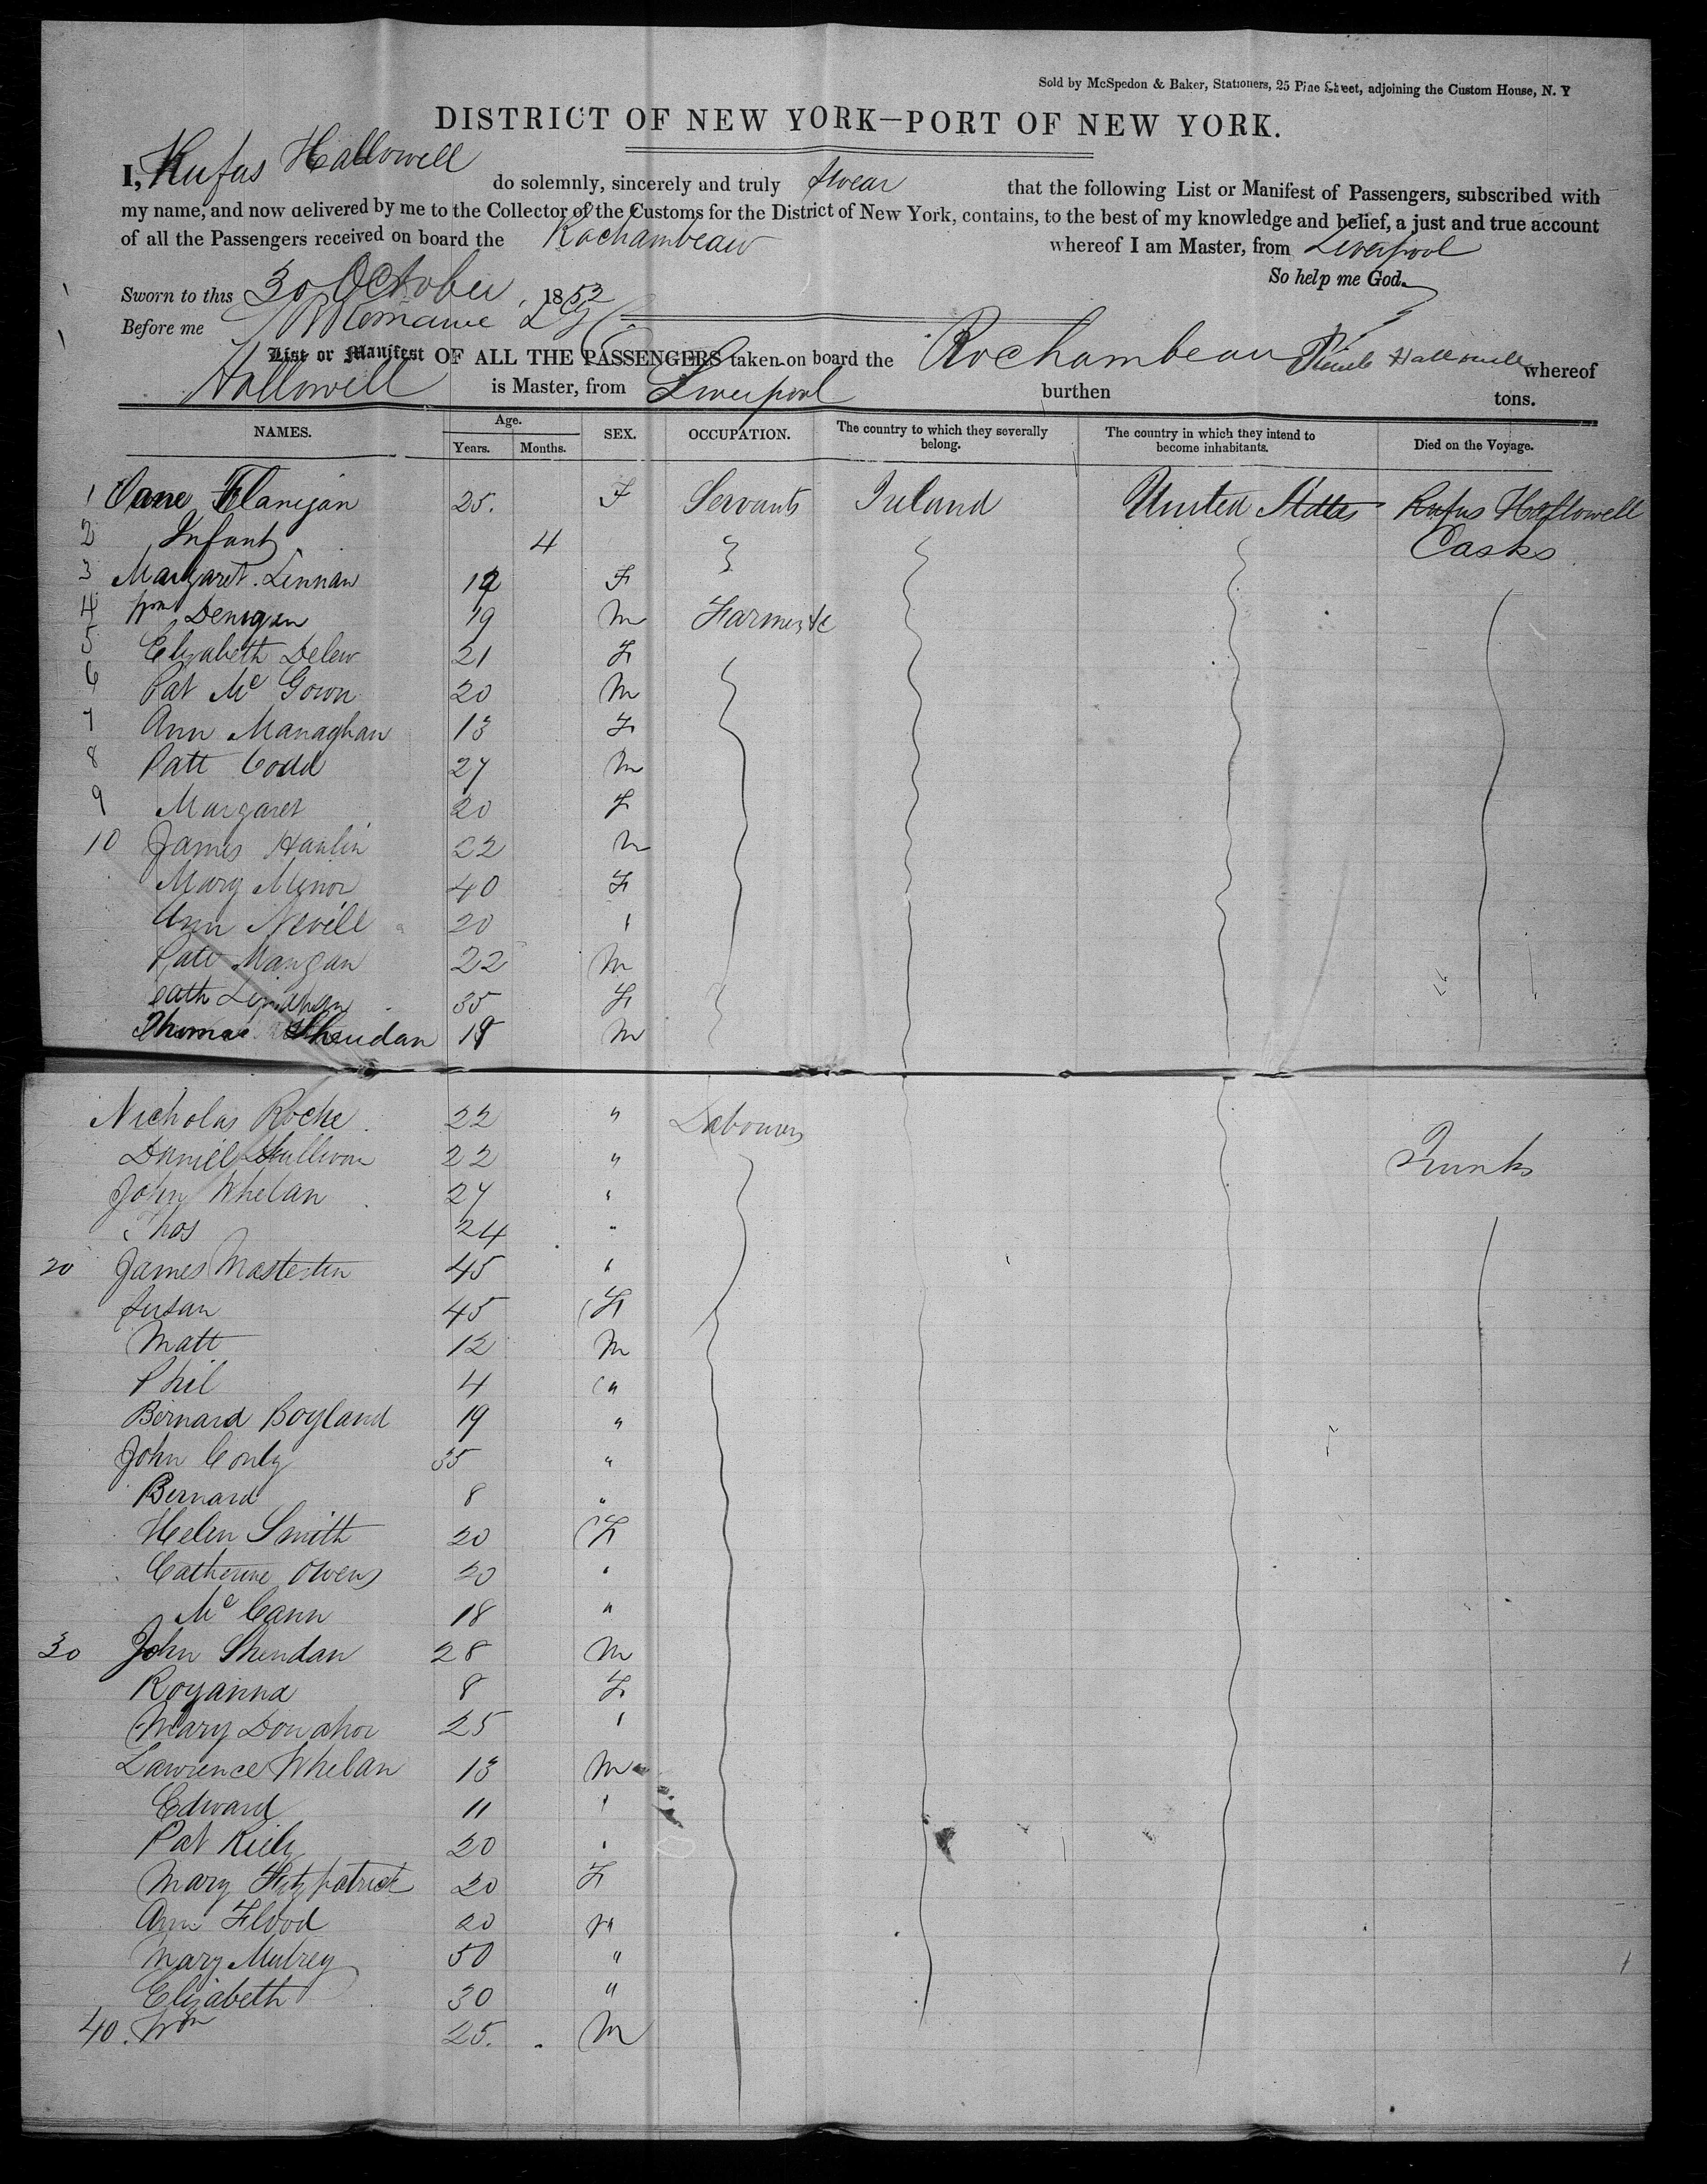 Sold by McSpedon & Baker, Stationers, 25 Pine Street, adjoining the Custom House, N. Y
DISTRICT OF NEW YORK—PORT OF NEW YORK.
I, Rufus Hallowell do solemnly, sincerely and truly swear that the following List or Manifest of Passengers, subscribed with
my name, and now delivered by me to the Collector of the Customs for the District of New York, contains, to the best of my knowledge and belief, a just and true account
of all the Passengers received on board the Rochambeau whereof I am Master, from Liverpool
So help me God.
Sworn to this 30 October, 1852
Before me
List or Manifest OF ALL THE PASSENGERS taken on board the Rochambeau Hallowell whereof
Hallowell is Master, from Liverpool burthen tons.
NAMES. Age. Years. Months. SEX. OCCUPATION. The country to which they severally belong. The country in which they intend to become inhabitants. Died on the Voyage.
1 Jane Flanigan 25. F Servants Ireland United States Rufus Hallowell
2 Infant 4 Casks
3 Margaret Linnan F
4 Wm Denigan 19 M Farmers &c
5 Elizabeth Delew 21 F
6 Pat Mc Gown 20 M
7 Ann Managhan 13 F
8 Patt Codd 27 M
9 Margaret 20 F
10 James Hanlin 22 M
Mary Minor 40 F
Ann Nevill 20 "
Patt Mangan 22 M
Cath 35 F
Thomas Sheridan M
Nicholas Roche 22 " Labourers
Daniel Sullivan 22 " Trunks
John Whelan 27 "
Thos 24 "
20 James Mastertin 45 "
Susan 45 F
Matt 12 M
Phil 4 "
Bernard Boyland 19 "
John Conly 35 "
Bernard 8 "
Helen Smith 20 F
Catherine Owens 20 "
Mc Cann 18 "
30 John Sheridan 28 M
Royanna 8 F
Mary Donahoe 25 "
Lawrence Whelan 13 M
Edward 11 "
Pat Riely 20 "
Mary Fitzpatrick 20 F
Ann Flood 20 "
Mary Mulrey 50 "
Elizabeth 30 "
40. Wm 25. M